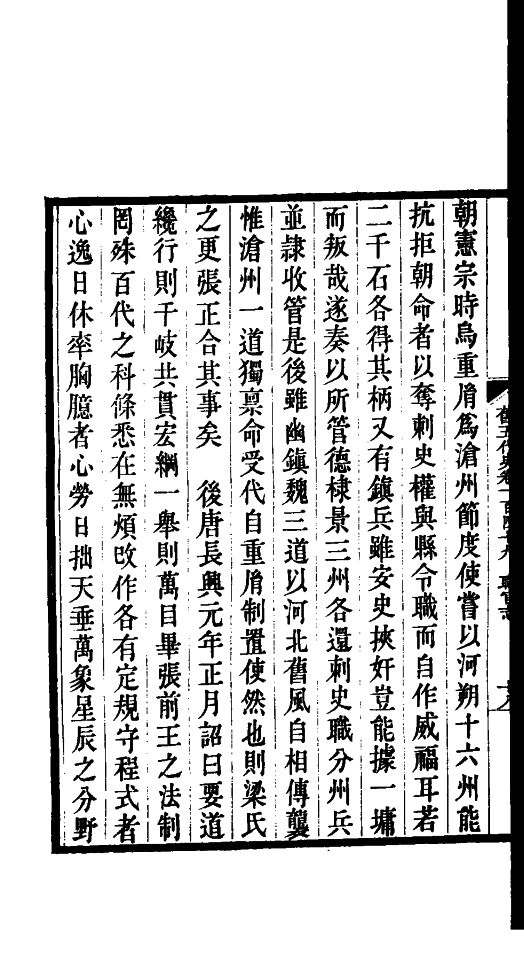 朝憲宗時烏重𦙍爲滄州節度使嘗以河朔十六州能
抗拒朝命者以奪刺史權與縣令職而自作威福耳若
二千石各得其柄又有鎮兵雖安史挾奸豈能據一墉
而叛哉遂奏以所管德棣景三州各還刺史職分州兵
並隷收管是後雖幽鎮魏三道以河北舊風自相傳襲
惟滄州一道獨稟命受代自重𦙍制置使然也則梁氏
之更張正合其事矣　後唐長興元年正月詔曰要道
纔行則千岐共貫宏綱一舉則萬目畢張前王之法制
罔殊百代之科條悉在無煩改作各有定規守程式者
心逸日休率胸臆者心勞日拙天垂萬象星辰之分野